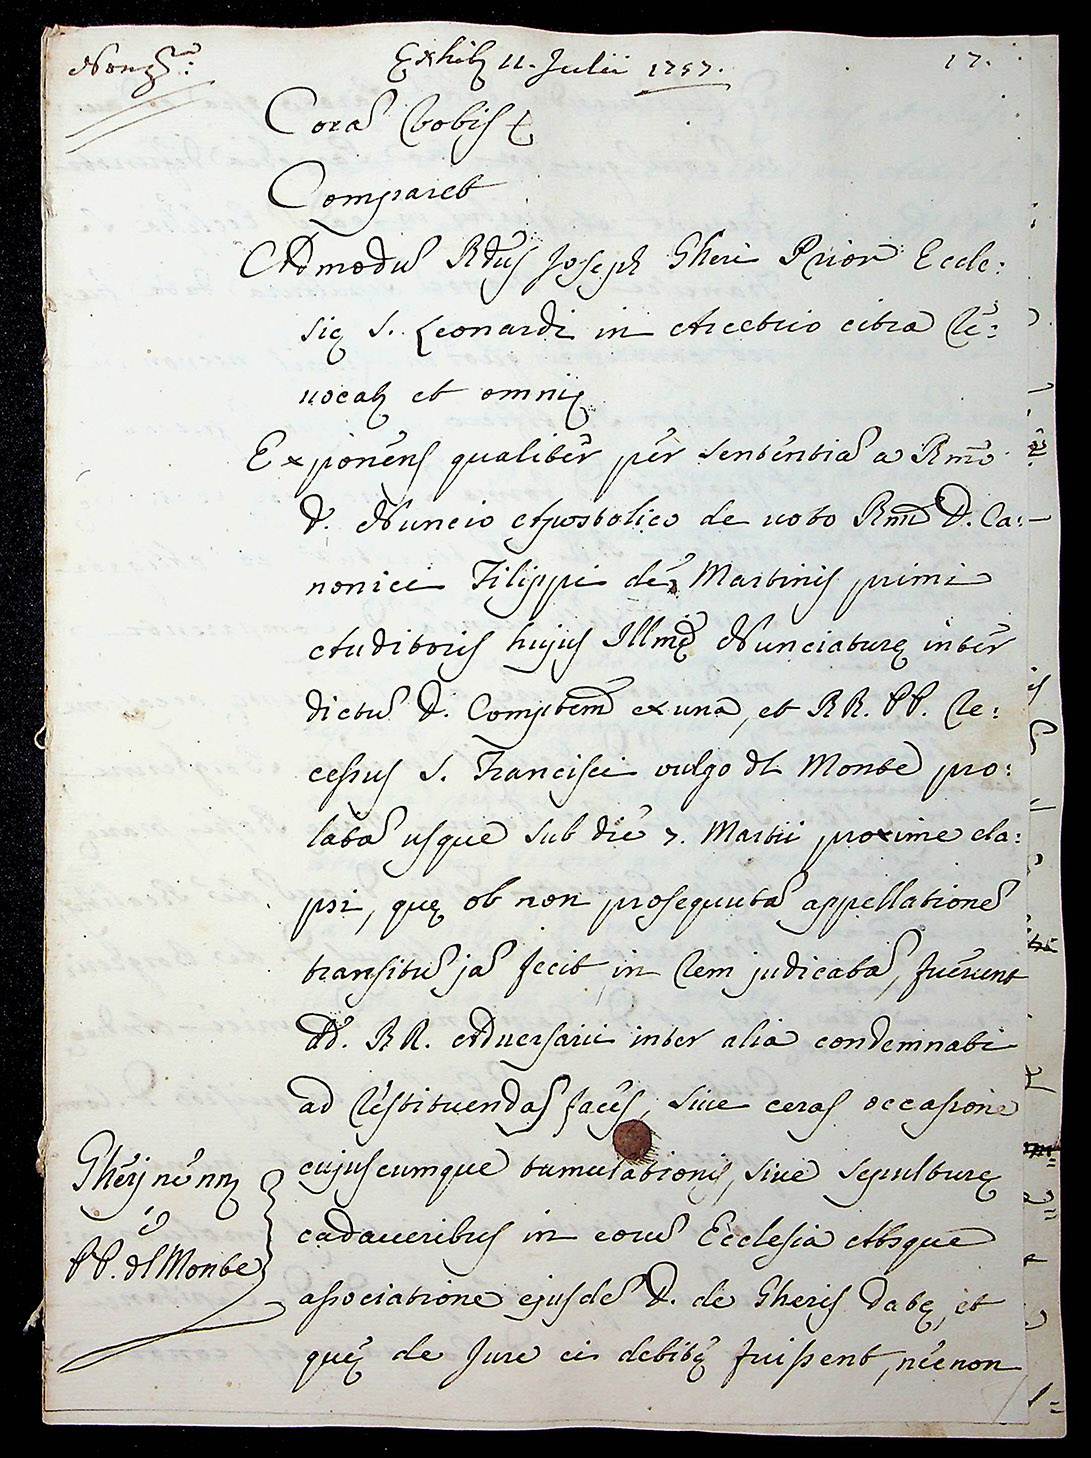 Exhib. 11. Julii 1757.
17.
Corã Vobis &
Comparet
Admodũ Rdus Joseph Gheri Prior Eccle:
się S. Leonardi in Arcetrio citra Re:
vocaõ et omni&
Exponens qualiter per sententiã a Rmo
D. Nuncio Apostolico de voto Rmi D. Ca:
nonici Filippi de Martinis primi
Auditoris hujus Illmę Nunciaturę inter
dictũ D. Comptem ex una, et RR. PP. Re:
cessus S. Francisci vulgo dl Monte pro:
latã usque sub die 7. Martii proxime ela:
psi, quę ob non prosequutã appellationẽ
transitũ jã fecit in Rem judicatã, fuerunt
dd. RR. Adversarii inter alia condemnati
ad restituendas faces, sive ceras occasione
cujuscumque tumulationis, sive sepulturę
cadaveribus in eorũ Ecclesia Absque
associatione ejusdẽ D. de Gheris datę, et
quę de Jure ei debitę fuissent, necnon
Gherj
PP. dl Monte